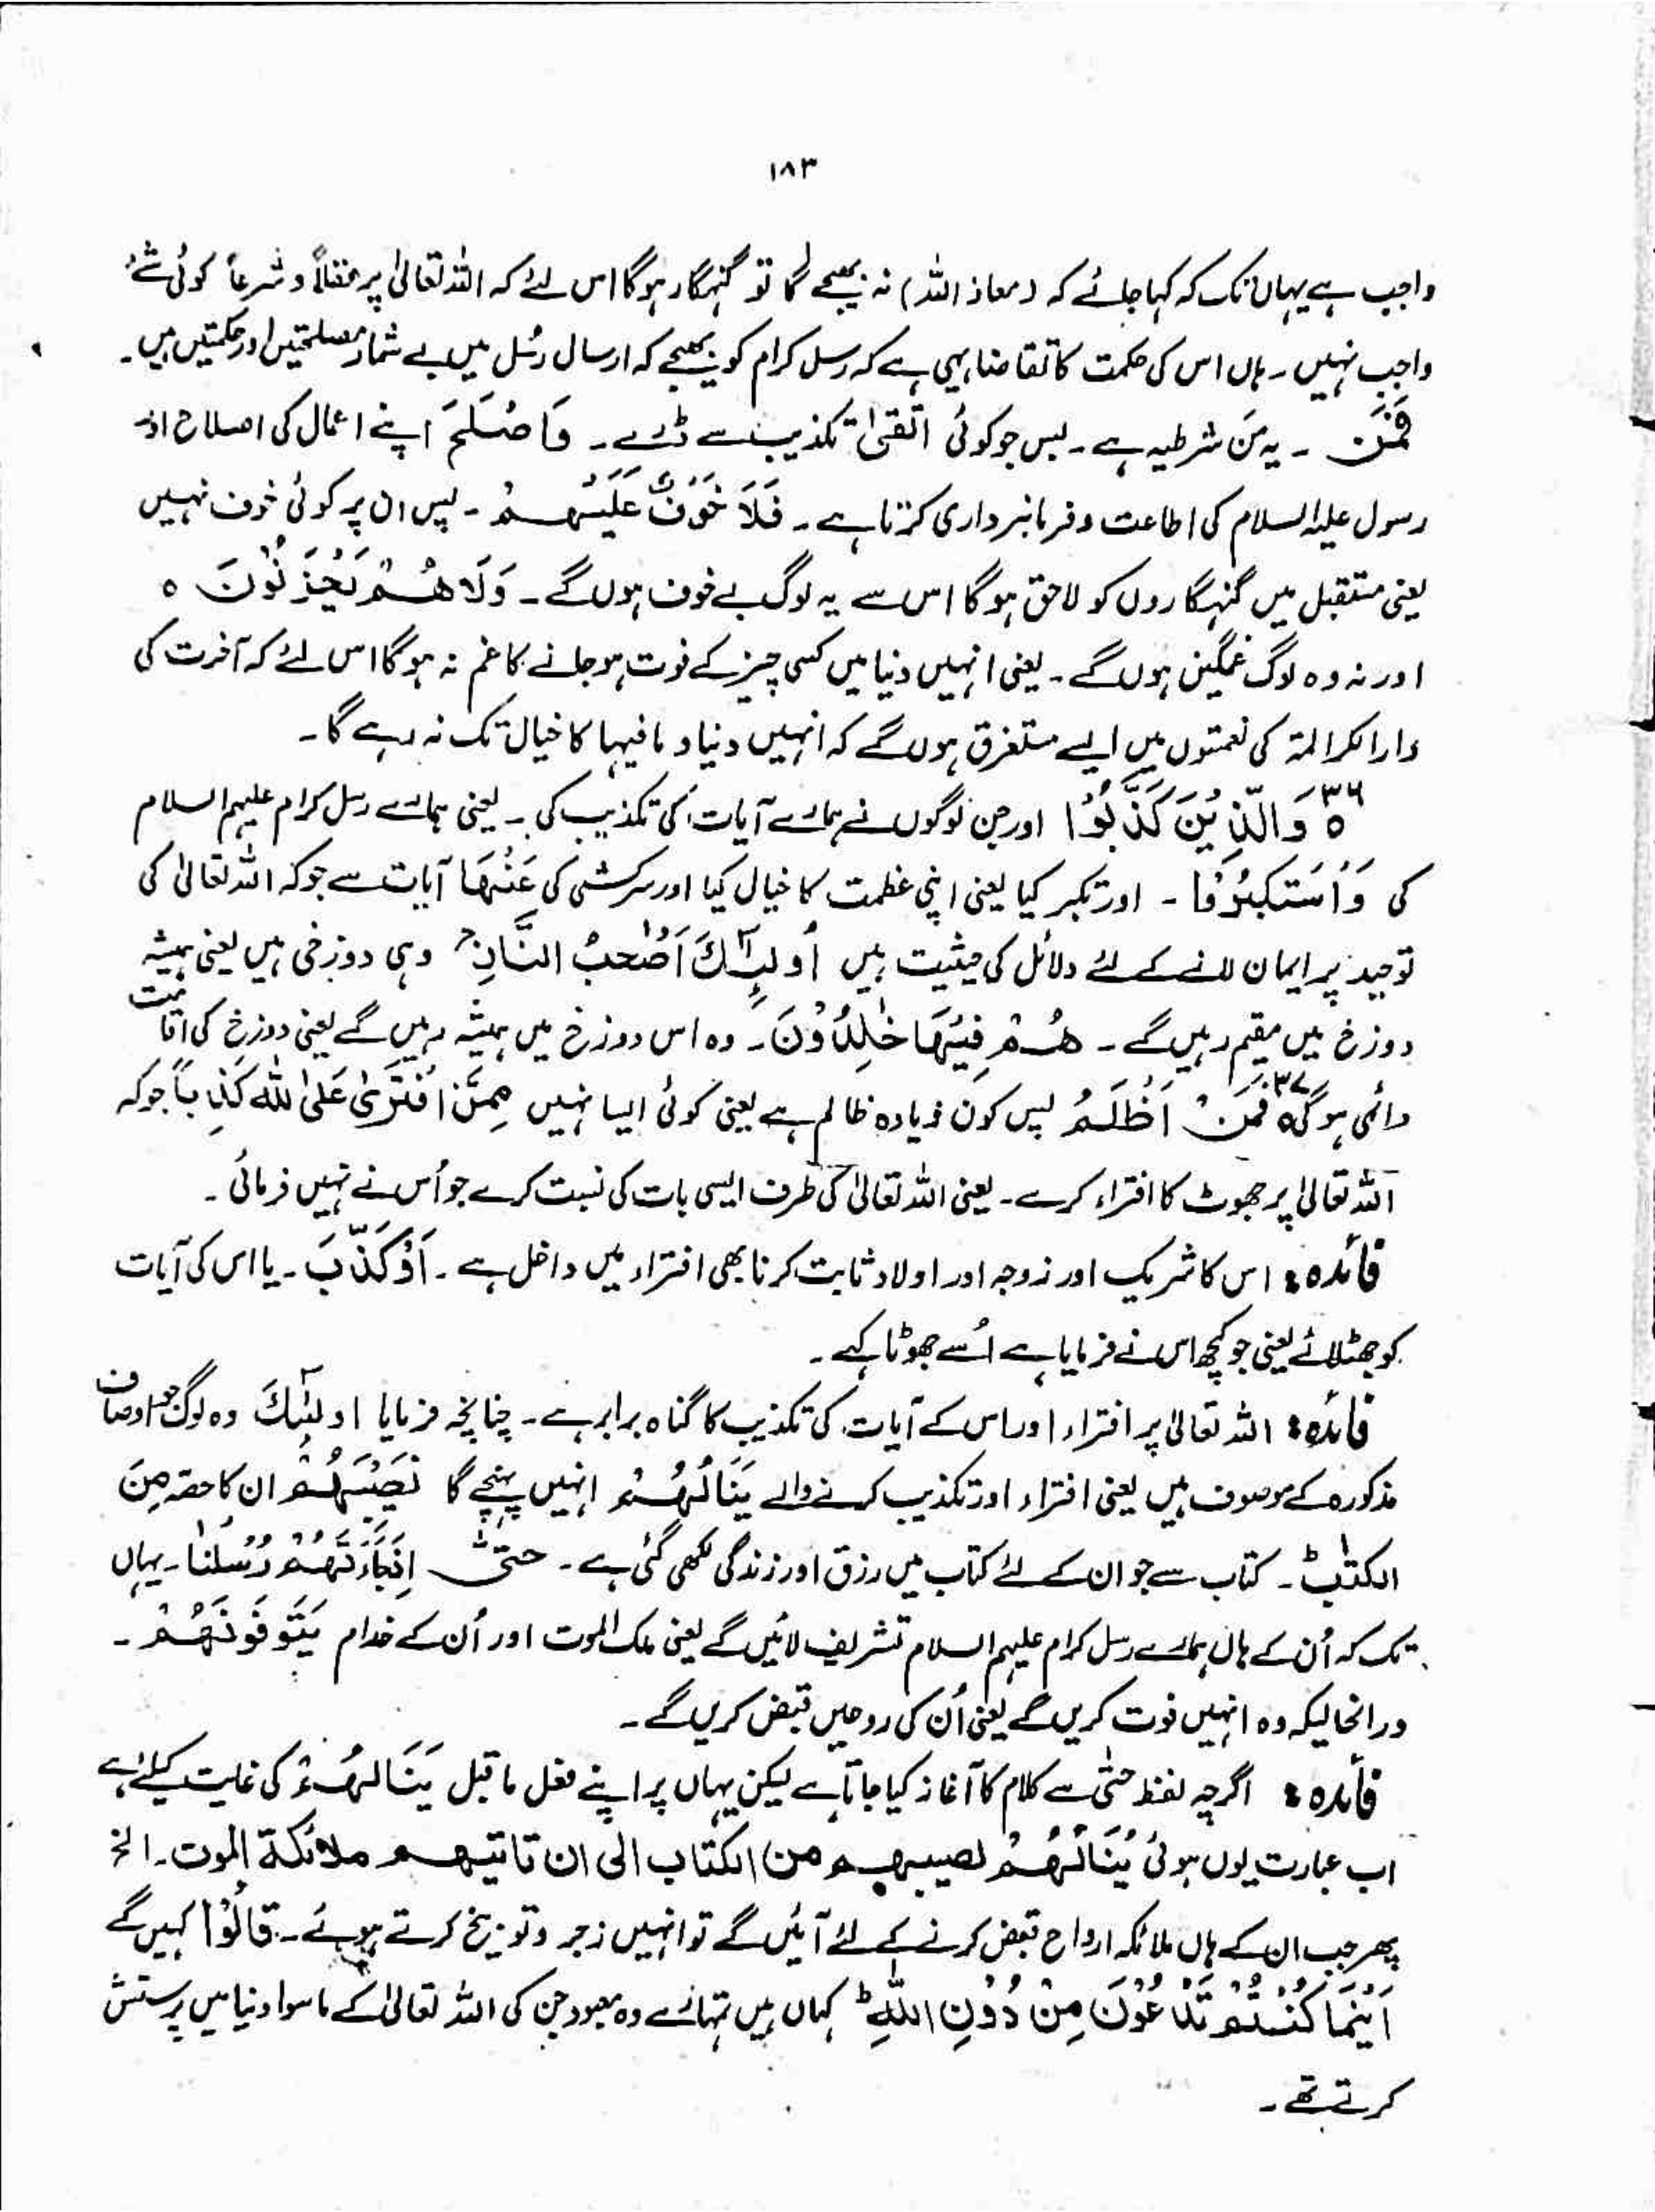 ۱۸۳
واجب ہے یہاں تک کہ کہا جائے کہ (معاذ اللہ) نہ بھیجے گا تو گنہگار ہوگا اس لئے کہ اللہ تعالیٰ پر عقلاً و شرعاً کوئی شے
واجب نہیں ۔ ہاں اس کی حکمت کا تقاضا یہی ہے کہ رسل کرام کو بھیجے کہ ارسال رُسل میں بے شمار مصلحتیں اور حکمتیں ہیں ۔
فَمَنِ ۔ یہ مَن شرطیہ ہے ۔ پس جو کوئی اتَّقیٰ تکذیب سے ڈرے ۔ وَاَصْلَحَ اپنے اعمال کی اصلاح اور
رسول علیہ السلام کی اطاعت و فرمانبرداری کرتا ہے ۔ فَلَا خَوْفٌ عَلَیْہِمْ ۔ پس ان پر کوئی خوف نہیں
یعنی مستقبل میں گنہگاروں کو لاحق ہوگا اس سے یہ لوگ بے خوف ہوں گے ۔ وَلَا ھُمْ یَحْزَنُوْنَ ٥
اور نہ وہ لوگ غمگین ہوں گے ۔ یعنی انہیں دنیا میں کسی چیز کے فوت ہو جانے کا غم نہ ہوگا اس لئے کہ آخرت کی
دارالکرامۃ کی نعمتوں میں ایسے مستغرق ہوں گے کہ انہیں دنیا و مافیہا کا خیال تک نہ رہے گا ۔
۳۶ ٥ وَالَّذِیْنَ کَذَّبُوْا اور جن لوگوں نے ہمارے آیات کی تکذیب کی ۔ یعنی ہمارے رسل کرام علیہم السلام
کی وَاسْتَکْبَرُوْا ۔ اور تکبر کیا یعنی اپنی عظمت کا خیال کیا اور سرکشی کی عَنْہَا آیات سے جو کہ اللہ تعالیٰ کی
توحید پر ایمان لانے کے لئے دلائل کی حیثیت ہیں اُولٰٓئِکَ اَصْحٰبُ النَّارِ ج وہی دوزخی ہیں یعنی ہمیشہ
دوزخ میں مقیم رہیں گے ۔ ھُمْ فِیْہَا خٰلِدُوْنَ ۔ وہ اس دوزخ میں ہمیشہ رہیں گے یعنی دوزخ کی اقامت
دائمی ہوگی ٥ ۳۷ فَمَنْ اَظْلَمُ پس کون زیادہ ظالم ہے یعنی کوئی ایسا نہیں مِمَّنِ افْتَرٰی عَلَی اللہِ کَذِباً جو کہ
اللہ تعالیٰ پر جھوٹ کا افتراء کرے ۔ یعنی اللہ تعالیٰ کی طرف ایسی بات کی نسبت کرے جو اُس نے نہیں فرمائی ۔
فائدہ : اس کا شریک اور زوجہ اور اولاد ثابت کرنا بھی افتراء میں داخل ہے ۔ اَوْ کَذَّبَ ۔ یا اس کی آیات
کو جھٹلائے یعنی جو کچھ اس نے فرمایا ہے اُسے جھوٹا کہے ۔
فائدہ : اللہ تعالیٰ پر افتراء اور اس کے آیات کی تکذیب کا گناہ برابر ہے ۔ چنانچہ فرمایا اولٰٓئِکَ وہ لوگ جو اوصاف
مذکورہ کے موصوف ہیں یعنی افتراء اور تکذیب کرنے والے یَنَالُہُمْ انہیں پہنچے گا نَصِیْبُہُمْ ان کا حصہ مِنَ
الکتٰبِ ط ۔ کتاب سے جو ان کے لئے کتاب میں رزق اور زندگی لکھی گئی ہے ۔ حتیّٰ اِذَا جَآءَتْہُمْ رُسُلُنَا ۔ یہاں
تک کہ اُن کے ہاں ہمارے رسل کرام علیہم السلام تشریف لائیں گے یعنی ملک الموت اور اُن کے خدام یَتَوَفَّوْنَہُمْ ۔
درانحالیکہ وہ انہیں فوت کریں گے یعنی اُن کی روحیں قبض کریں گے ۔
فائدہ : اگرچہ لفظ حتیٰ سے کلام کا آغاز کیا جاتا ہے لیکن یہاں پر اپنے فعل ماقبل یَنَالُہُمْ کی غایت کیلئے ہے
اب عبارت یوں ہوئی یَنَالُہُمْ نصیبہم من الکتاب الی ان تاتیہم ملائکۃ الموت ۔ الخ
پھر جب ان کے ہاں ملائکہ ارواح قبض کرنے کے لئے آئیں گے تو انہیں زجر و توبیخ کرتے ہوئے ۔ قَالُوْا کہیں گے
اَیْنَمَا کُنْتُمْ تَدْعُوْنَ مِنْ دُوْنِ اللّٰہِ ط کہاں ہیں تمہارے وہ معبود جن کی اللہ تعالیٰ کے ماسوا دنیا میں پرستش
کرتے تھے ۔